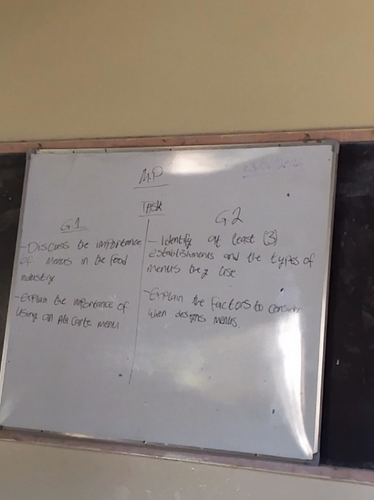 M.P
TASK
G1
- Discuss the importance
of menus in the food
industry
- Explain the importance of
Using an Ala Carte menu
G2
- Identify at least (3)
establishments and the types of
menus they use
- Explain the factors to consider
when designing menus.